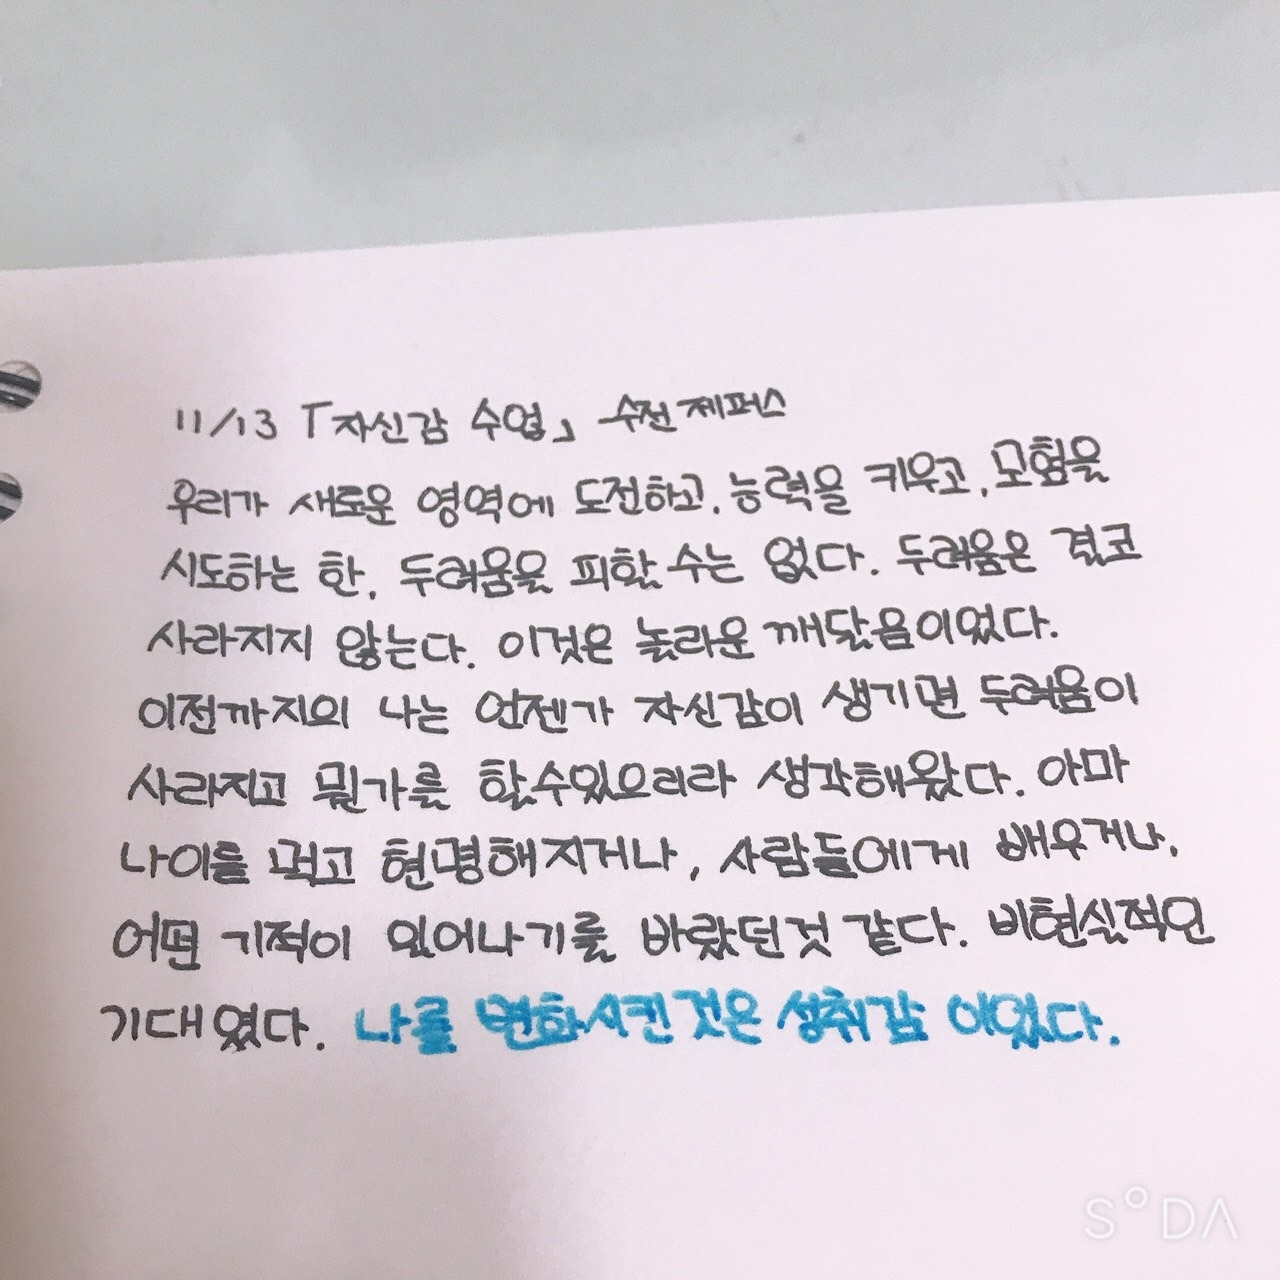 11/13 「자신감 수업」 수전 제퍼스
우리가 새로운 영역에 도전하고, 능력을 키우고, 모험을
시도하는 한, 두려움을 피할 수는 없다. 두려움은 결코
사라지지 않는다. 이것은 놀라운 깨달음이었다.
이전까지의 나는 언젠가 자신감이 생기면 두려움이
사라지고 뭔가를 할수있으리라 생각해왔다. 아마
나이를 먹고 현명해지거나, 사람들에게 배우거나,
어떤 기적이 일어나기를 바랐던것 같다. 비현실적인
기대였다. 나를 변화시킨것은 성취감 이었다.
SODA